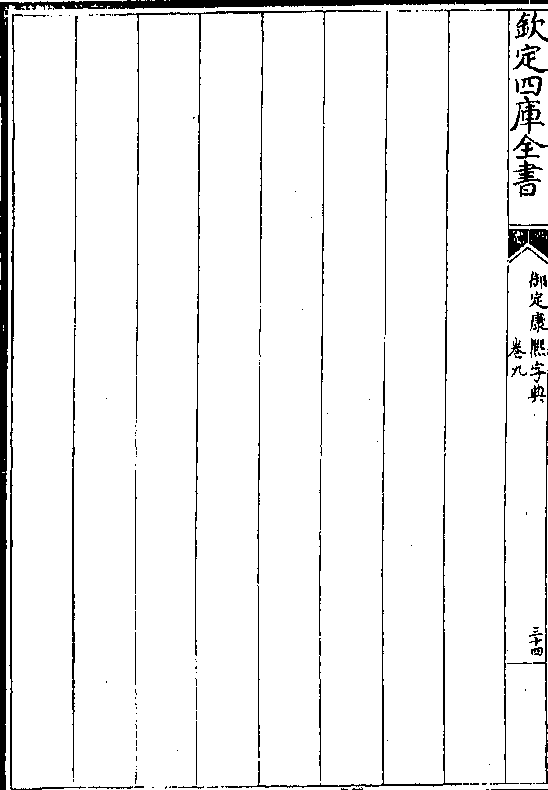 欽定四庫全書
御定康熙字典
卷九
三十四